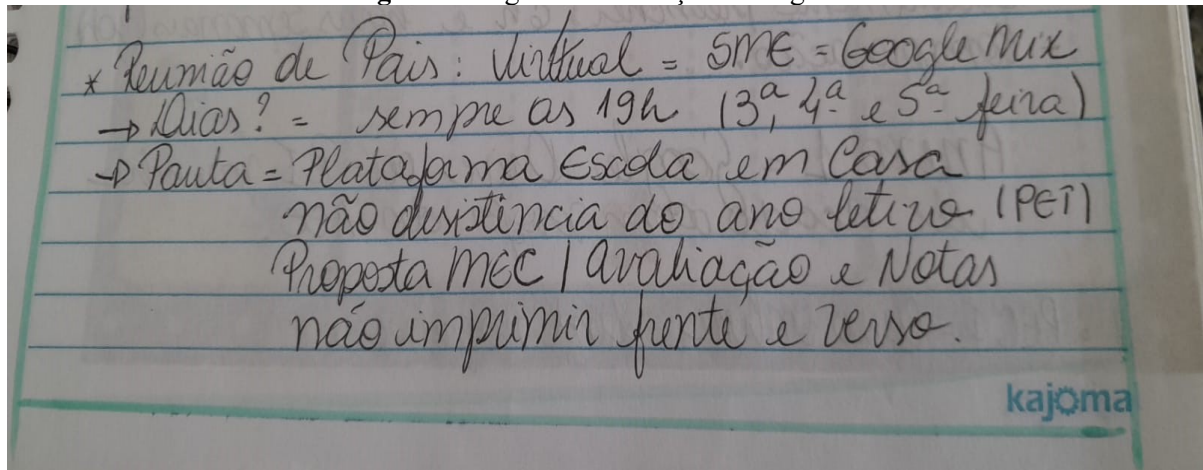 * Reunião de Pais: Virtual = SME = Google Mix
→ Dias? = sempre as 19h (3ª, 4ª e 5ª feira)
→ Pauta = Plataforma Escola em Casa
não desistência do ano letivo (PET)
Proposta MEC | avaliação e Notas
não imprimir frente e verso.
kajoma